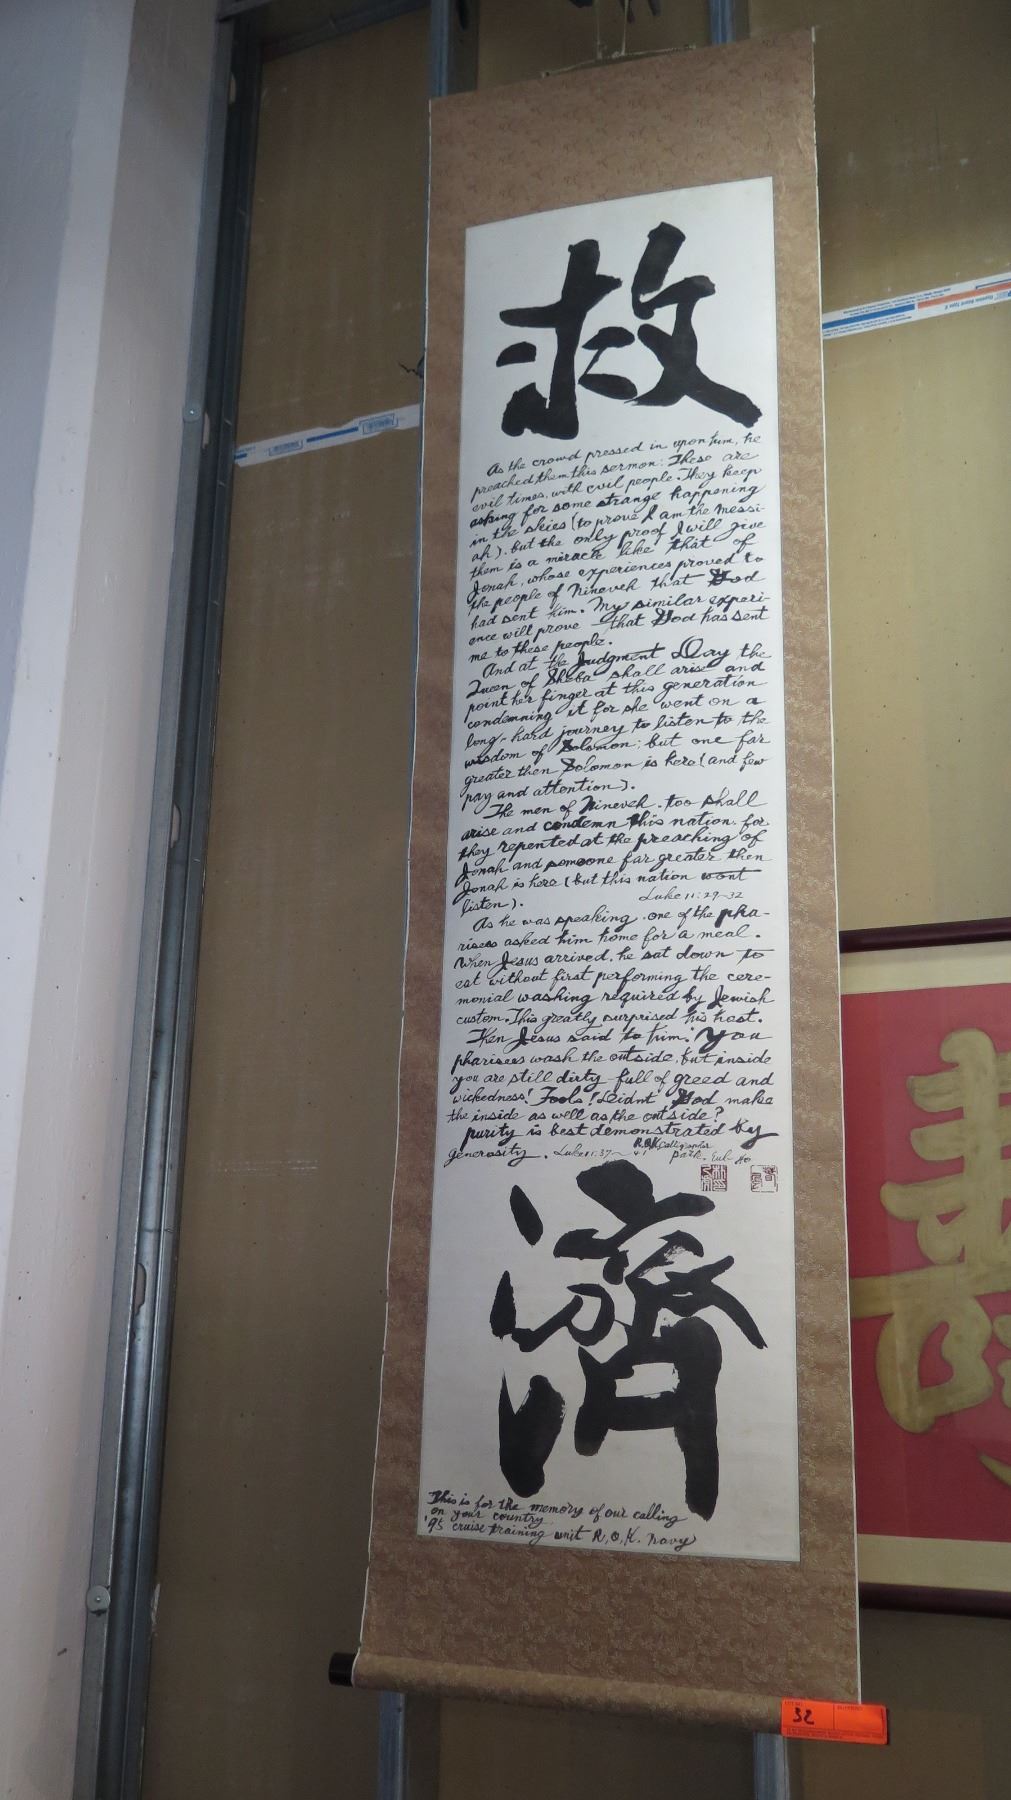 救
As the crowd pressed in upon him, he
preached them this sermon: These are
evil times, with evil people. They keep
asking for some strange happening
in the skies (to prove I am the Messi-
ah). but the only proof I will give
them is a miracle like that of
Jonah, whose experiences proved to
the people of Nineveh that God
had sent him. My similar experi-
ence will prove that God has sent
me to these people.
And at the Judgment Day the
Queen of Sheba shall arise and
point her finger at this generation
condemning it for she went on a
long, hard journey to listen to the
wisdom of Solomon; but one far
greater then Solomon is here (and few
pay and attention).
The men of Nineveh. too shall
arise and condemn this nation. for
they repented at the preaching of
Jonah and someone far greater then
Jonah is here (but this nation wont
listen). Luke 11:29~32
As he was speaking. one of the pha-
risees asked him home for a meal.
When Jesus arrived. he sat down to
eat without first performing the cere-
monial washing required by Jewish
custom. This greatly surprised his host.
Then Jesus said to him: You
pharisees wash the outside, but inside
you are still dirty full of greed and
wickedness! Fools! Deidnt God make
the inside as well as the outside?
purity is best demonstrated by
generosity. Luke 11:37~41
R.O.K Calligrapher
Park. Eul Ho
濟
This is for the memory of our calling
on your country.
'95 cruise training unit R.O.K. Navy
32